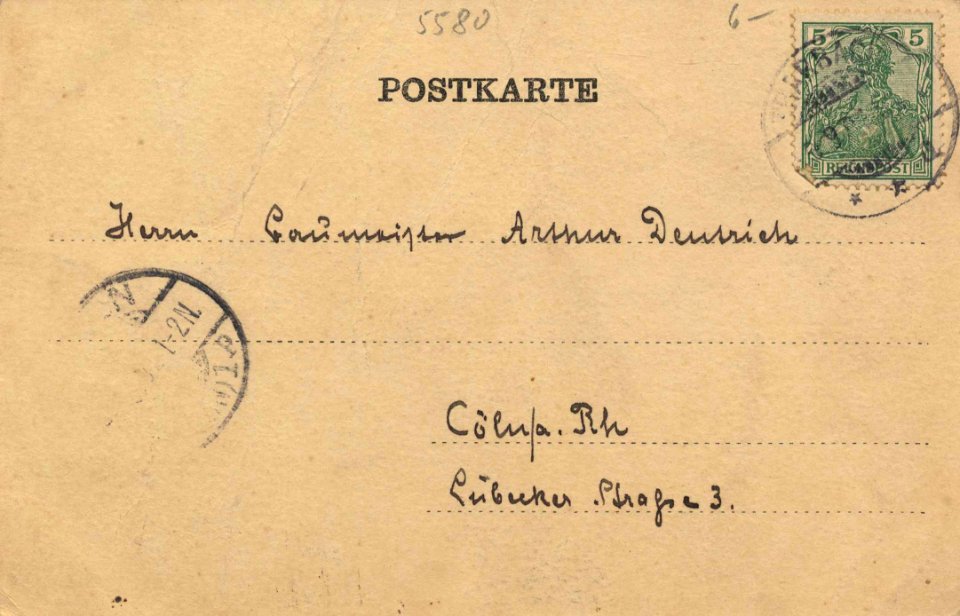 5580
6–
POSTKARTE
5 5
REICHSPOST
Herrn Baumeister Arthur Deutrich
1-2N.
Cöln/a. Rh
Lübecker Strasse 3.